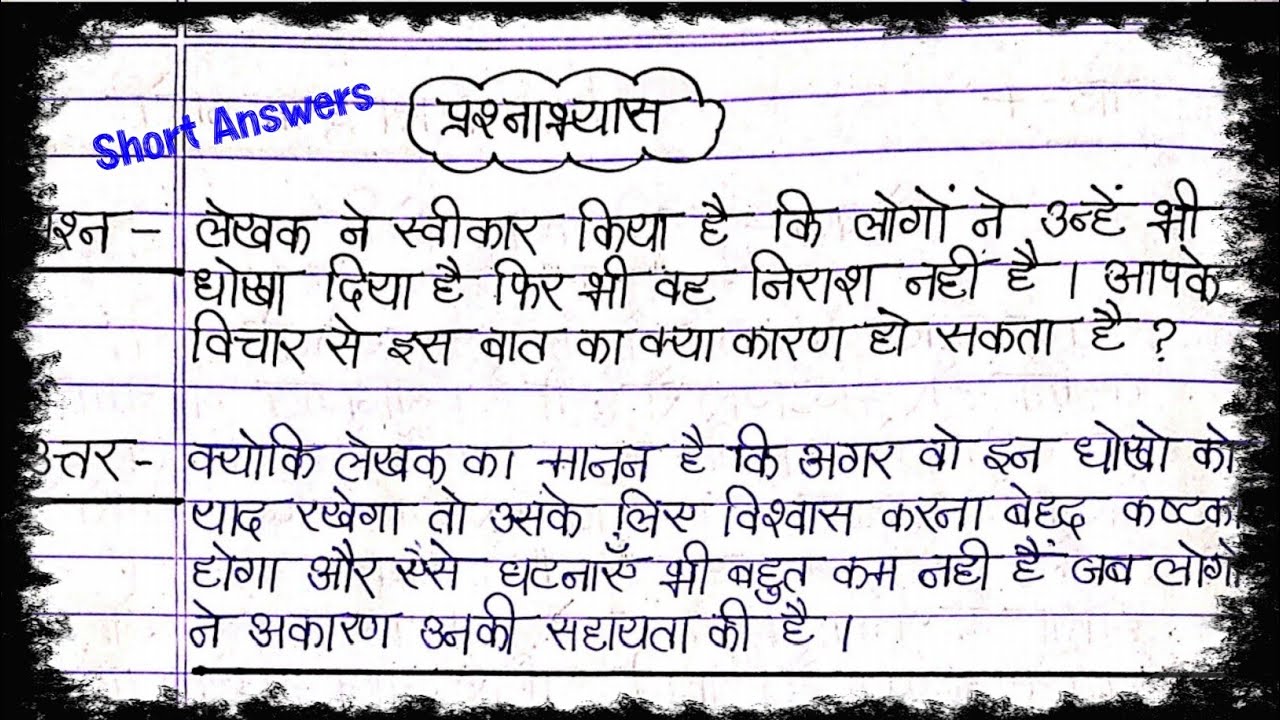 Short Answers
प्रश्नाभ्यास
श्न – लेखक ने स्वीकार किया है कि लोगों ने उन्हें भी
धोखा दिया है फिर भी वह निराश नहीं है । आपके
विचार से इस बात का क्या कारण हो सकता है ?
उत्तर – क्योकि लेखक का मानन है कि अगर वो इन धोखो को
याद रखेगा तो उसके लिए विश्वास करना बेहद कष्टक
होगा और ऐसे घटनाएँ भी बहुत कम नही हैं जब लोगो
ने अकारण उनकी सहायता की है ।